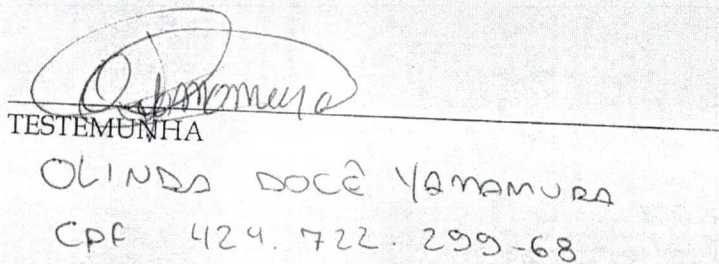 TESTEMUNHA
OLINDA DOCÊ YAMAMURA
CPF 424.722.299-68